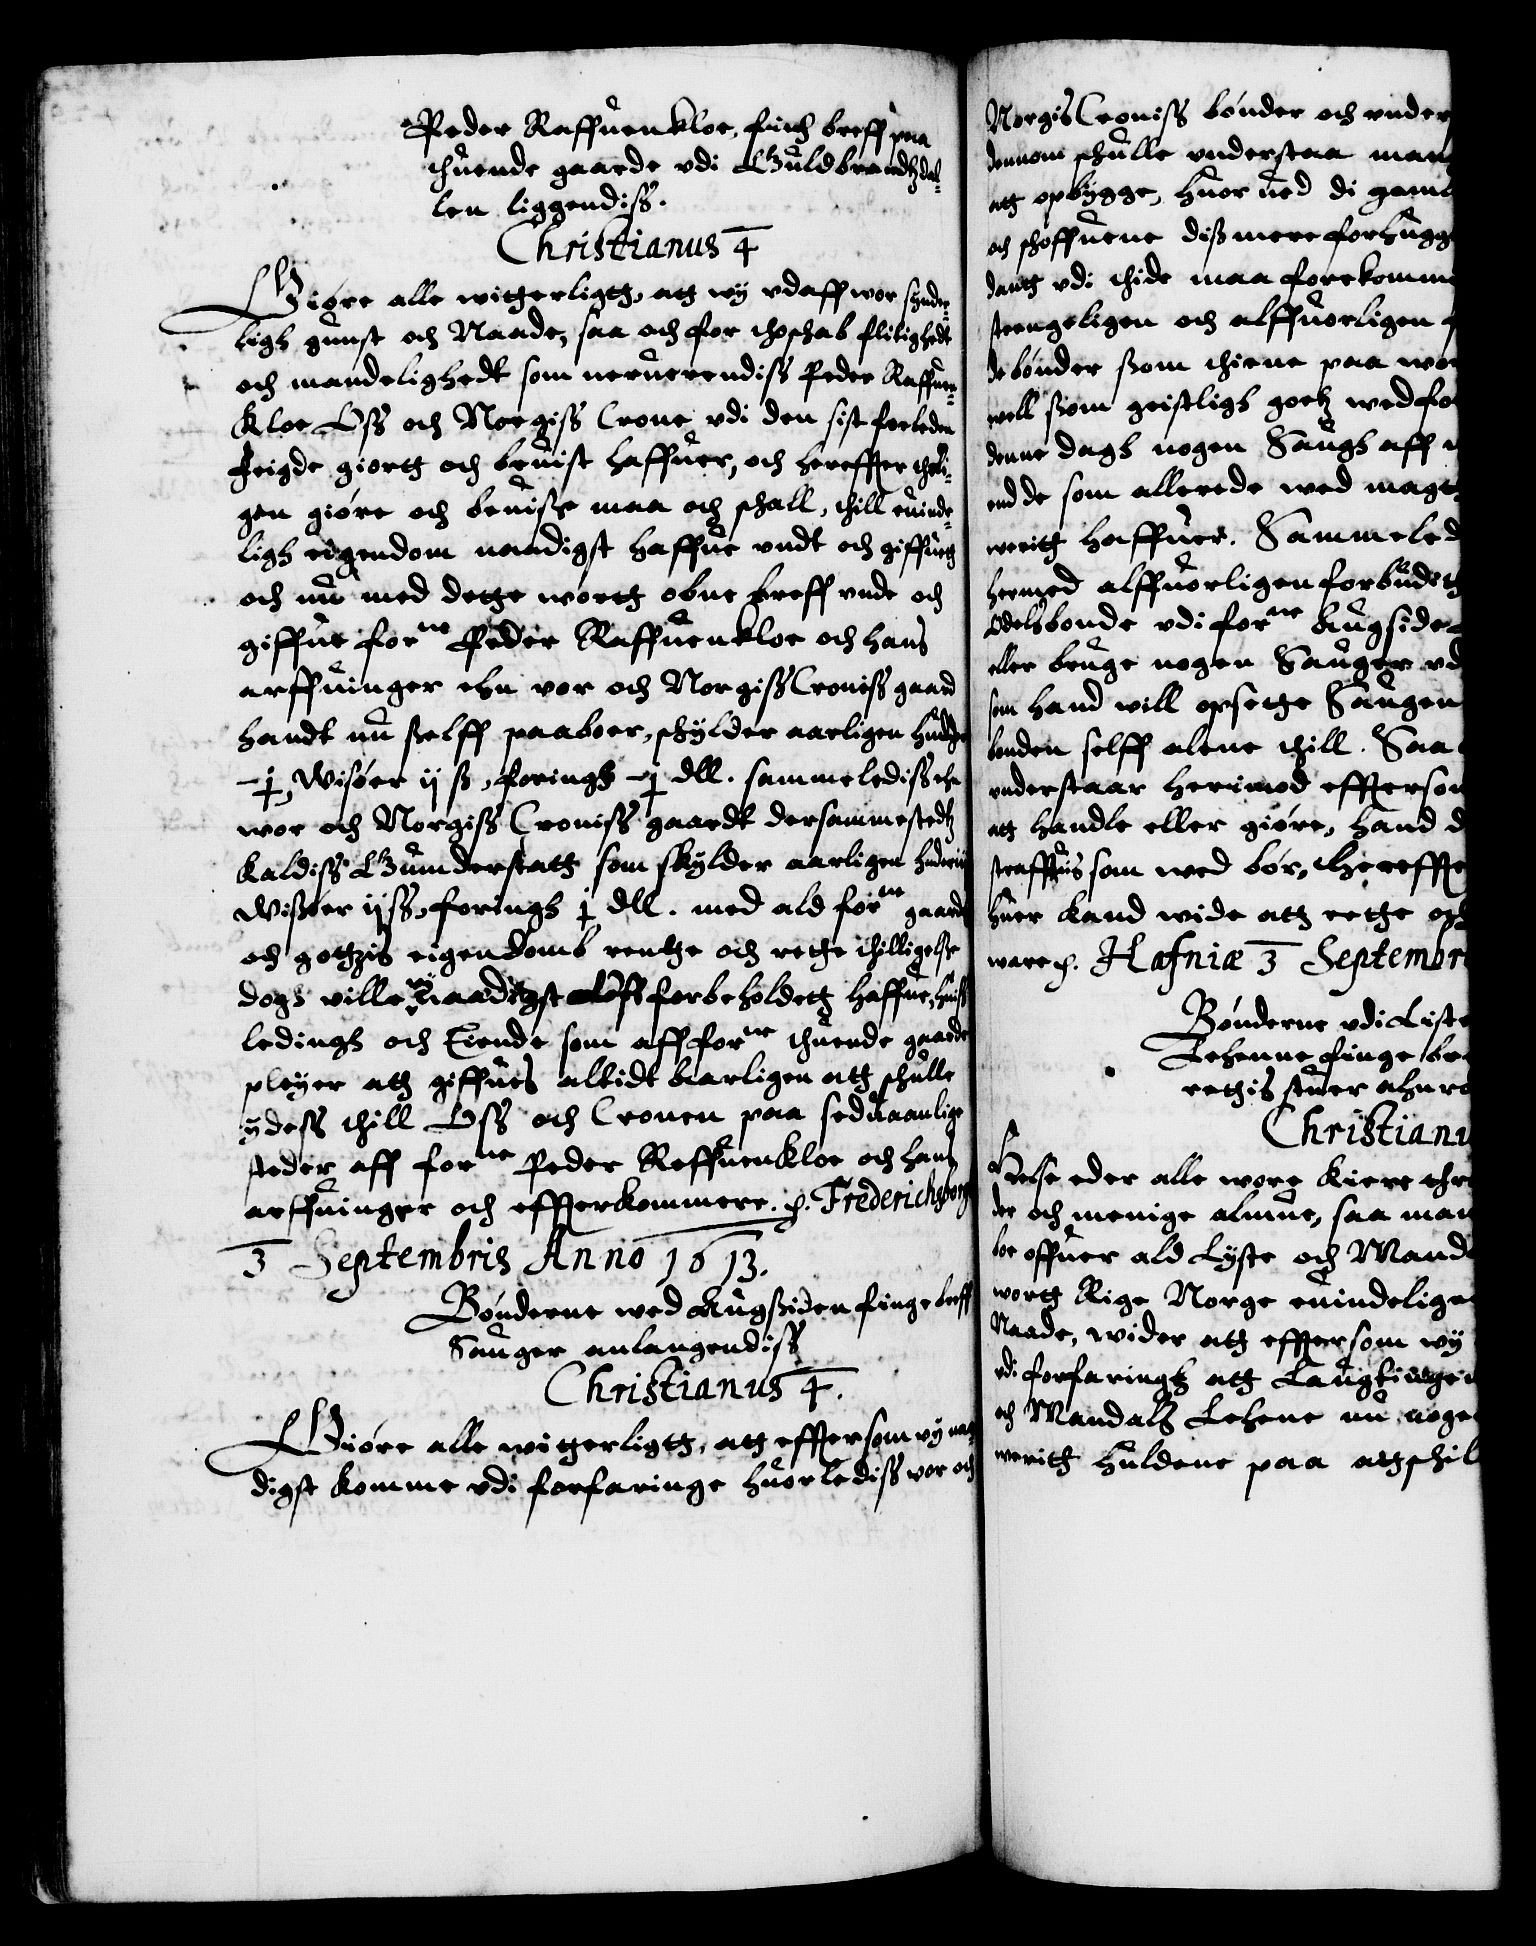 Peder Raffuenkloe, fich breff paa
thuende gaarde vdi Guldbrandtzdal=
len liggendiss.
Christianus 4
Giøre alle witterligtt, att wy vdaff wor synder=
ligh gunst och Naade, saa och for throschab flitighedt
och mandelighedt som neruerendiss Peder Raffuen=
kloe Oss och Norgiss Crone vdi den sist forleden
Feigde giortt och beuist haffuer, och hereffter theli=
gen giøre och beuisse maa och schall, thill euinde=
ligh eigendom naadigst haffue vndt och giffuett
och nu med dette wortt obne breff vnde och
giffue forne Peder Raffuenkloe och hans
arffuinger ehn vor och Norgiss Croniss gaard
handt nu sselff paaboer, schylder aarligen
Wisøer ij ß, foringh j dlr. sammelediss ehn
wor och Norgiss Croniss gaardt dersammestedtz
kaldiss Gunderstatt som skylder aarligen
Wissøer ij ss, foringh j dlr. med ald forne gaarde
och gotzis eigendomb rentte och rette thilligelse
dogh ville wy naadigst Oss forbeholdett haffue, huiss
ledingh och Tiende som aff forne thuende gaarde
pleyer att giffues altidt aarligen att schulle
ydess thill Oss och Cronen paa seduaanlige
steder aff forne Peder Raffuenkloe och hans
arffuinger och effterkommere. p. Frederichsborg
3 Septembris Anno 1613.
Bønderne wed Augssiden finge breff
Sauger anlangendiss
Christianus 4.
Giøre alle witterligtt, att efftersom wy naa=
digst komme vdi forfaringe huorlediss vor och
Norgis Croniss bønder och vnder
dennom schulle vnderstaa man
att opbygge, huor ued di gaml
och schoffuene diss mere forhugg
dantt vdi thide maa forekomme
strengeligen och alffuorligen f
de bønder ssom thiene paa wor
well ssom geistligh gotz wed fo
denne dagh nogen Saugh aff n
end de som allerede wed magt
weritt haffuer. Sammeled
hermed alffuorligen forbudett
Odelsbonde vdi forne Augside
eller bruge nogen Sauger vd
som hand will opsette Saugen
bonden selff alene thill. Saa
vnderstaar herimod effterson
att handle eller giøre, hand d
straffuis som wed bør, thereffter
huer kand wide att rette och
ware. p. Hafniæ 3 Septembr
Bønderne vdi Liste
Lehenne finge bre
rettis stuer ahnro
Christianu
Helse eder alle wore kiere thro
der och menige almue, saa man
boe offuer ald Lyste och Mand
wortt Rige Norge euindelige
Naade, wider att efftersom wy
vdi forfaringh att Laugtinge
och Mandals Lehene nu noge
weritt huldene paa att schil